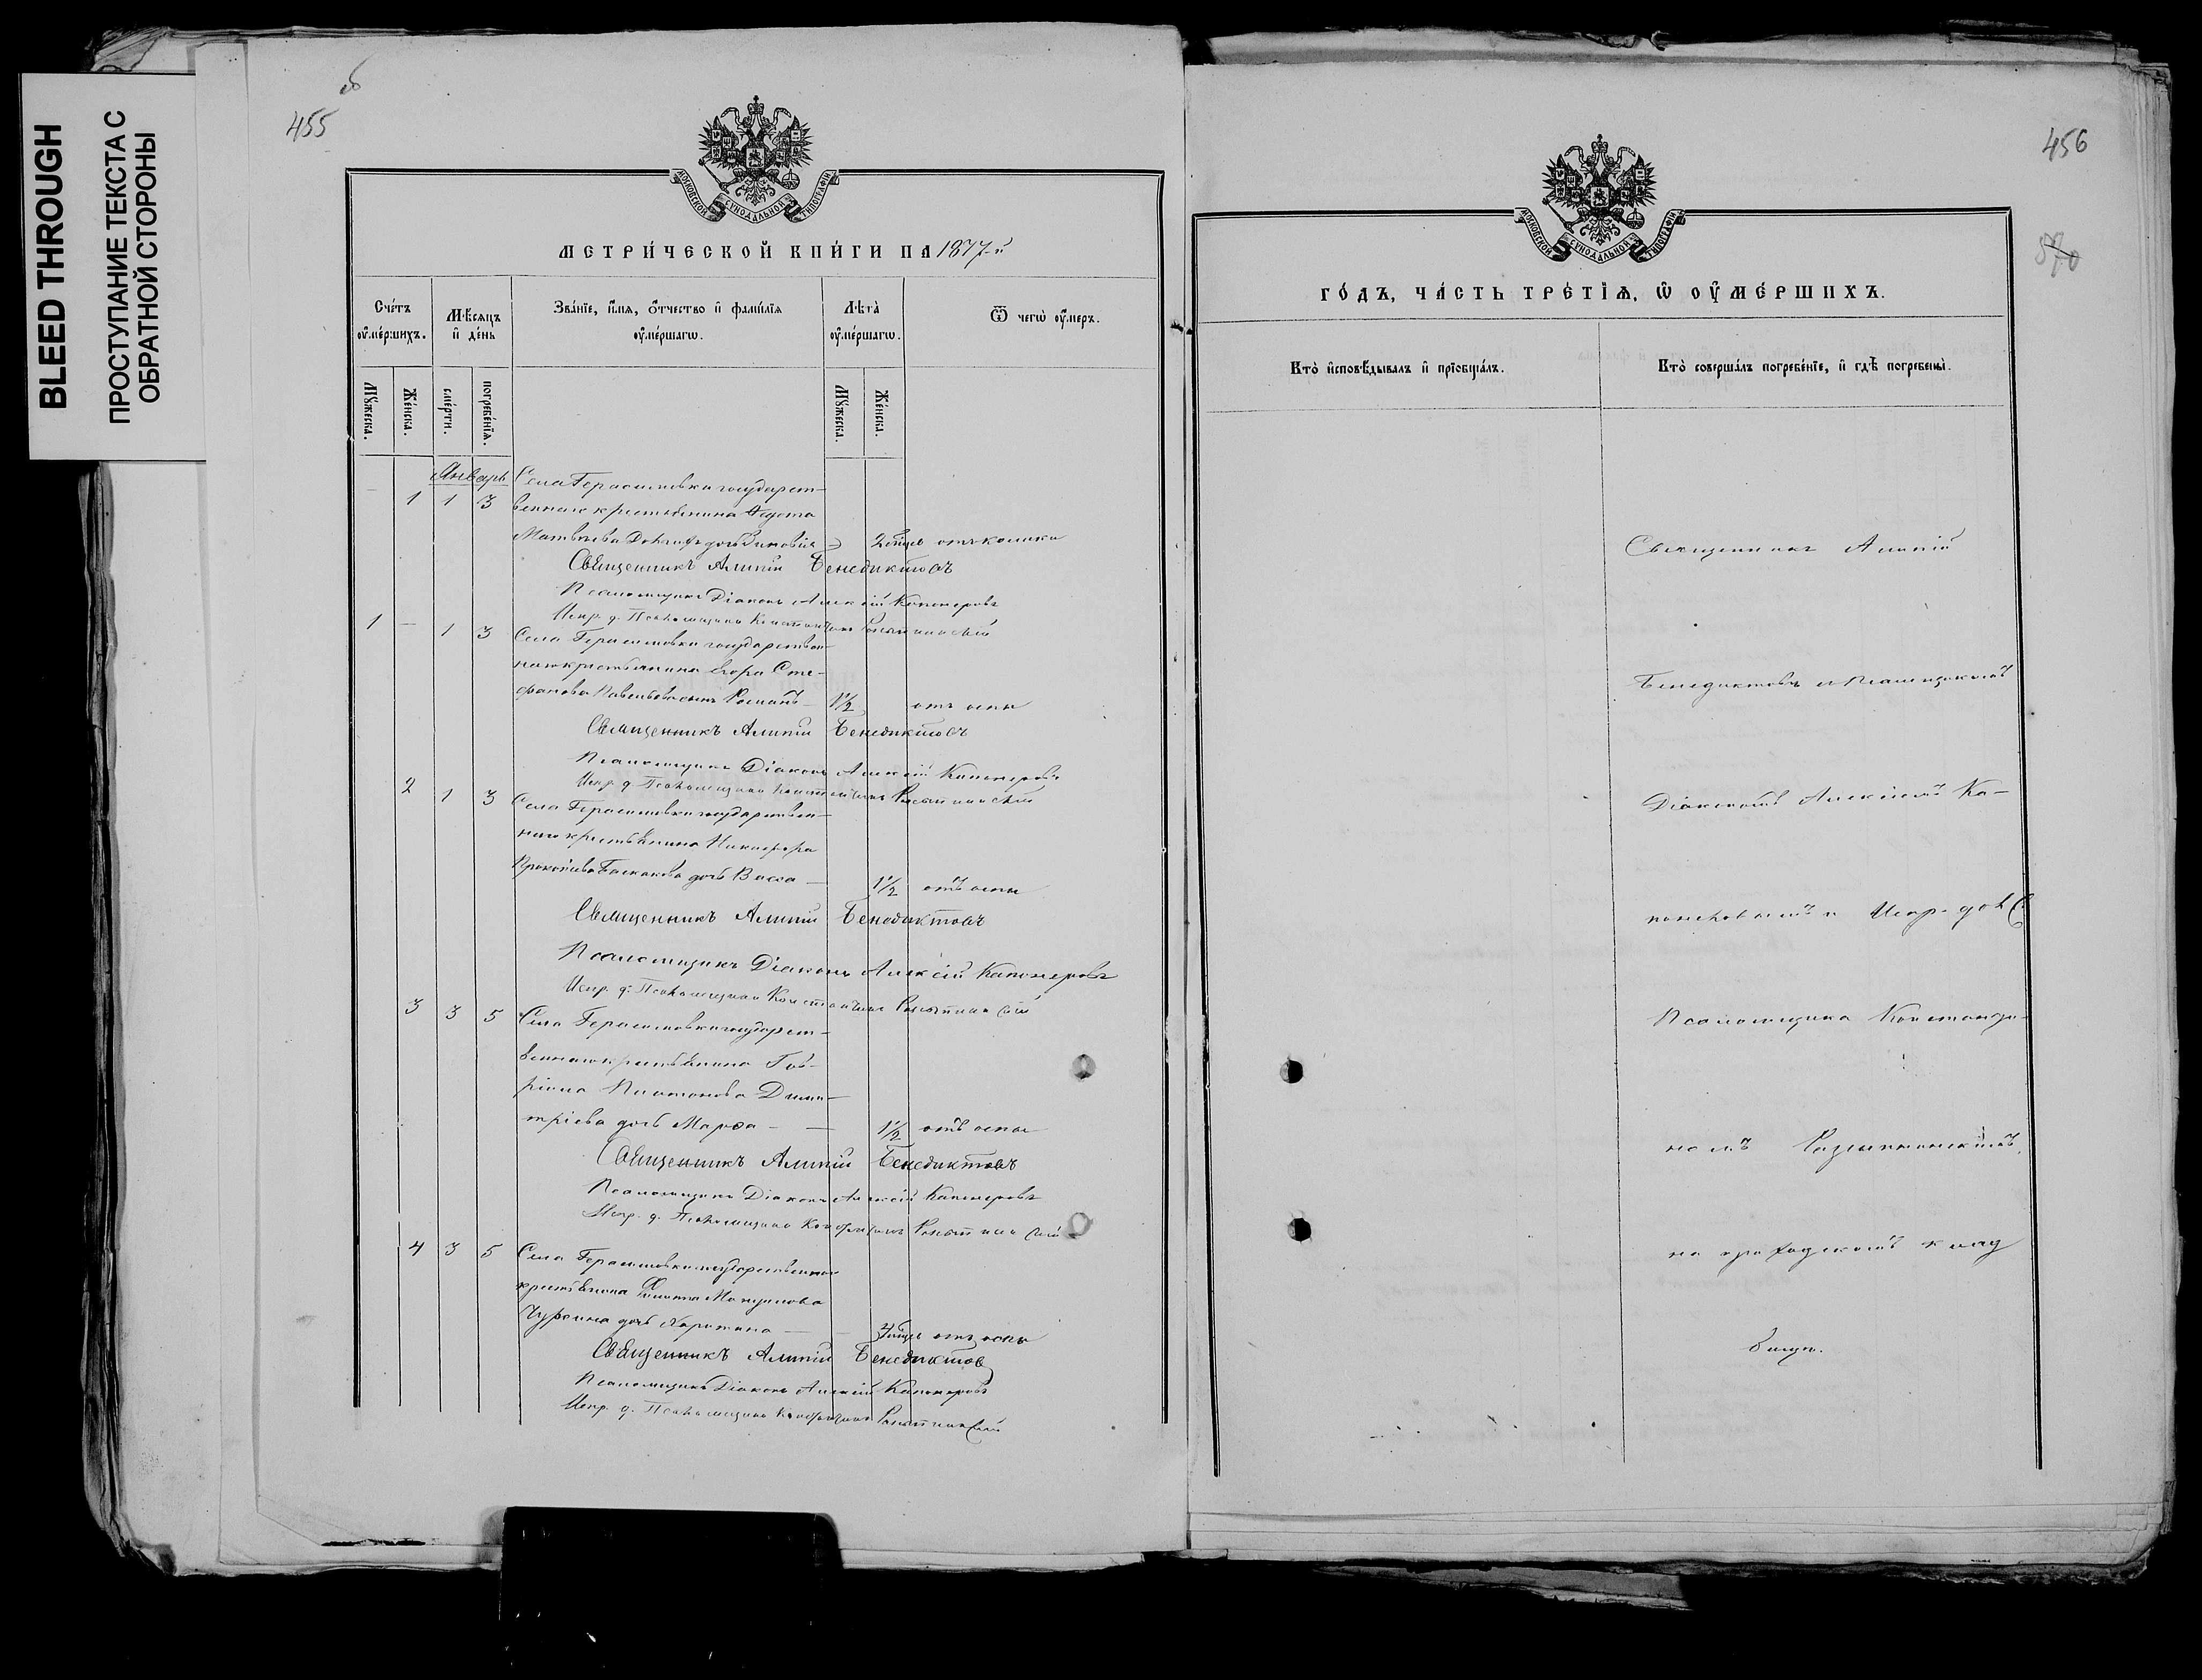 BLEED THROUGH
ПРОСТУПАНИЕ ТЕКСТА С
ОБРАТНОЙ СТОРОНЫ
455
456
МОСКОВСКОЙ СѴНОДАЛЬНОЙ ТИПОГРАФІИ
МЕТРИ́ЧЕСКОЙ КНИ́ГИ НА 1877-й
Сче́тъ ᲂу҆ме́ршихъ.
Мѣ́сяцъ и҆ де́нь
Зва́нїе, и҆́мя, ѻ҆́тчество и҆ фами́лїя ᲂу҆ме́ршагѡ.
Лѣ́та ᲂу҆ме́ршагѡ.
Ѿ чегѡ̀ ᲂу҆́меръ.
Мꙋ́жеска.
Же́нска.
сме́рти.
погребе́нїѧ.
Мꙋ́жеска.
Же́нска.
Январь
Села Герасимовки государст-
1 1 3 веннаго крестьянина Федота
Матвѣева дочь Зиновія 2 мѣс. отъ колики
Священникъ Алипій Бенедиктовъ
Псаломщикъ Діаконъ Алексій Капонеровъ
Испр. д. Псаломщика Константинъ
1 — 1 3 Села Герасимовки государствен-
наго крестьянина Егора Сте-
фанова сынъ Романъ — 1½ отъ оспы
Священникъ Алипій Бенедиктовъ
Псаломщикъ Діаконъ Алексій Капонеровъ
Испр. д. Псаломщика Константинъ
2 1 3 Села Герасимовки государствен-
наго крестьянина Никифора
Прокопіева дочь Васса — 1½ отъ оспы
Священникъ Алипій Бенедиктовъ
Псаломщикъ Діаконъ Алексій Капонеровъ
Испр. д. Псаломщика Константинъ
3 3 5 Села Герасимовки государст-
веннаго крестьянина Гав-
ріила Платонова Дими-
тріева дочь Марѳа — — 1½ отъ оспы
Священникъ Алипій Бенедиктовъ
Псаломщикъ Діаконъ Алексій Капонеровъ
Испр. д. Псаломщика Константинъ
4 3 5 Села Герасимовки государственнаго
крестьянина
Чурсина дочь Харитина — отъ оспы
Священникъ Алипій Бенедиктовъ
Псаломщикъ Діаконъ Алексій Капонеровъ
Испр. д. Псаломщика Константинъ
МОСКОВСКОЙ СѴНОДАЛЬНОЙ ТИПОГРАФІИ
ГО́ДЪ, ЧА́СТЬ ТРЕ́ТЇѦ, Ѡ҆ ОУ҆МЕ́РШИХЪ.
Кто̀ и҆сповѣ́дывалъ и҆ прїобща́лъ.
Кто̀ соверша́лъ погребе́нїе, и҆ гдѣ̀ погребены̀.
Священникъ Алипій
Бенедиктовъ съ Псаломщикомъ
Діакономъ Алексіемъ Ка-
понеровымъ и Испр. дол.
Псаломщика Константи-
номъ
на приходскомъ клад
бищѣ.